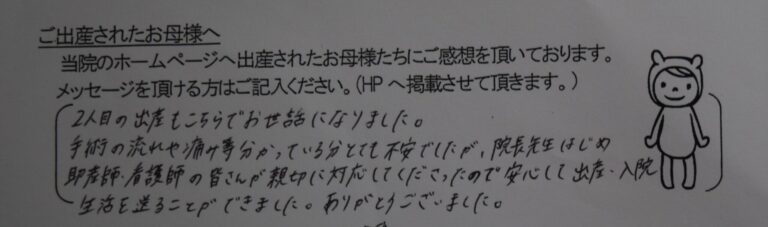 ご出産されたお母様へ
当院のホームページへ出産されたお母様たちにご感想を頂いております。
メッセージを頂ける方はご記入ください。(HPへ掲載させて頂きます。)
2人目の出産もこちらでお世話になりました。
手術の流れや痛み等分かっている分とても不安でしたが、院長先生はじめ
助産師・看護師の皆さんが親切に対応してくださったので安心して出産・入院
生活を送ることができました。ありがとうございました。